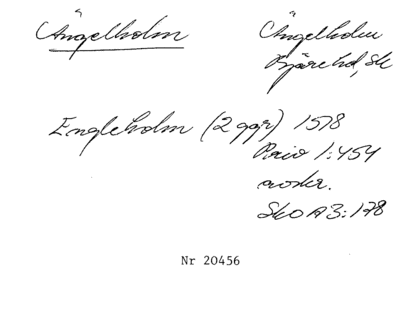 Ängelholm
Ängelholm
Bjäre hd, Sk
Engleholm (2 ggr) 1578
1:454
avskr.
SkOA 3:178
Nr 20456